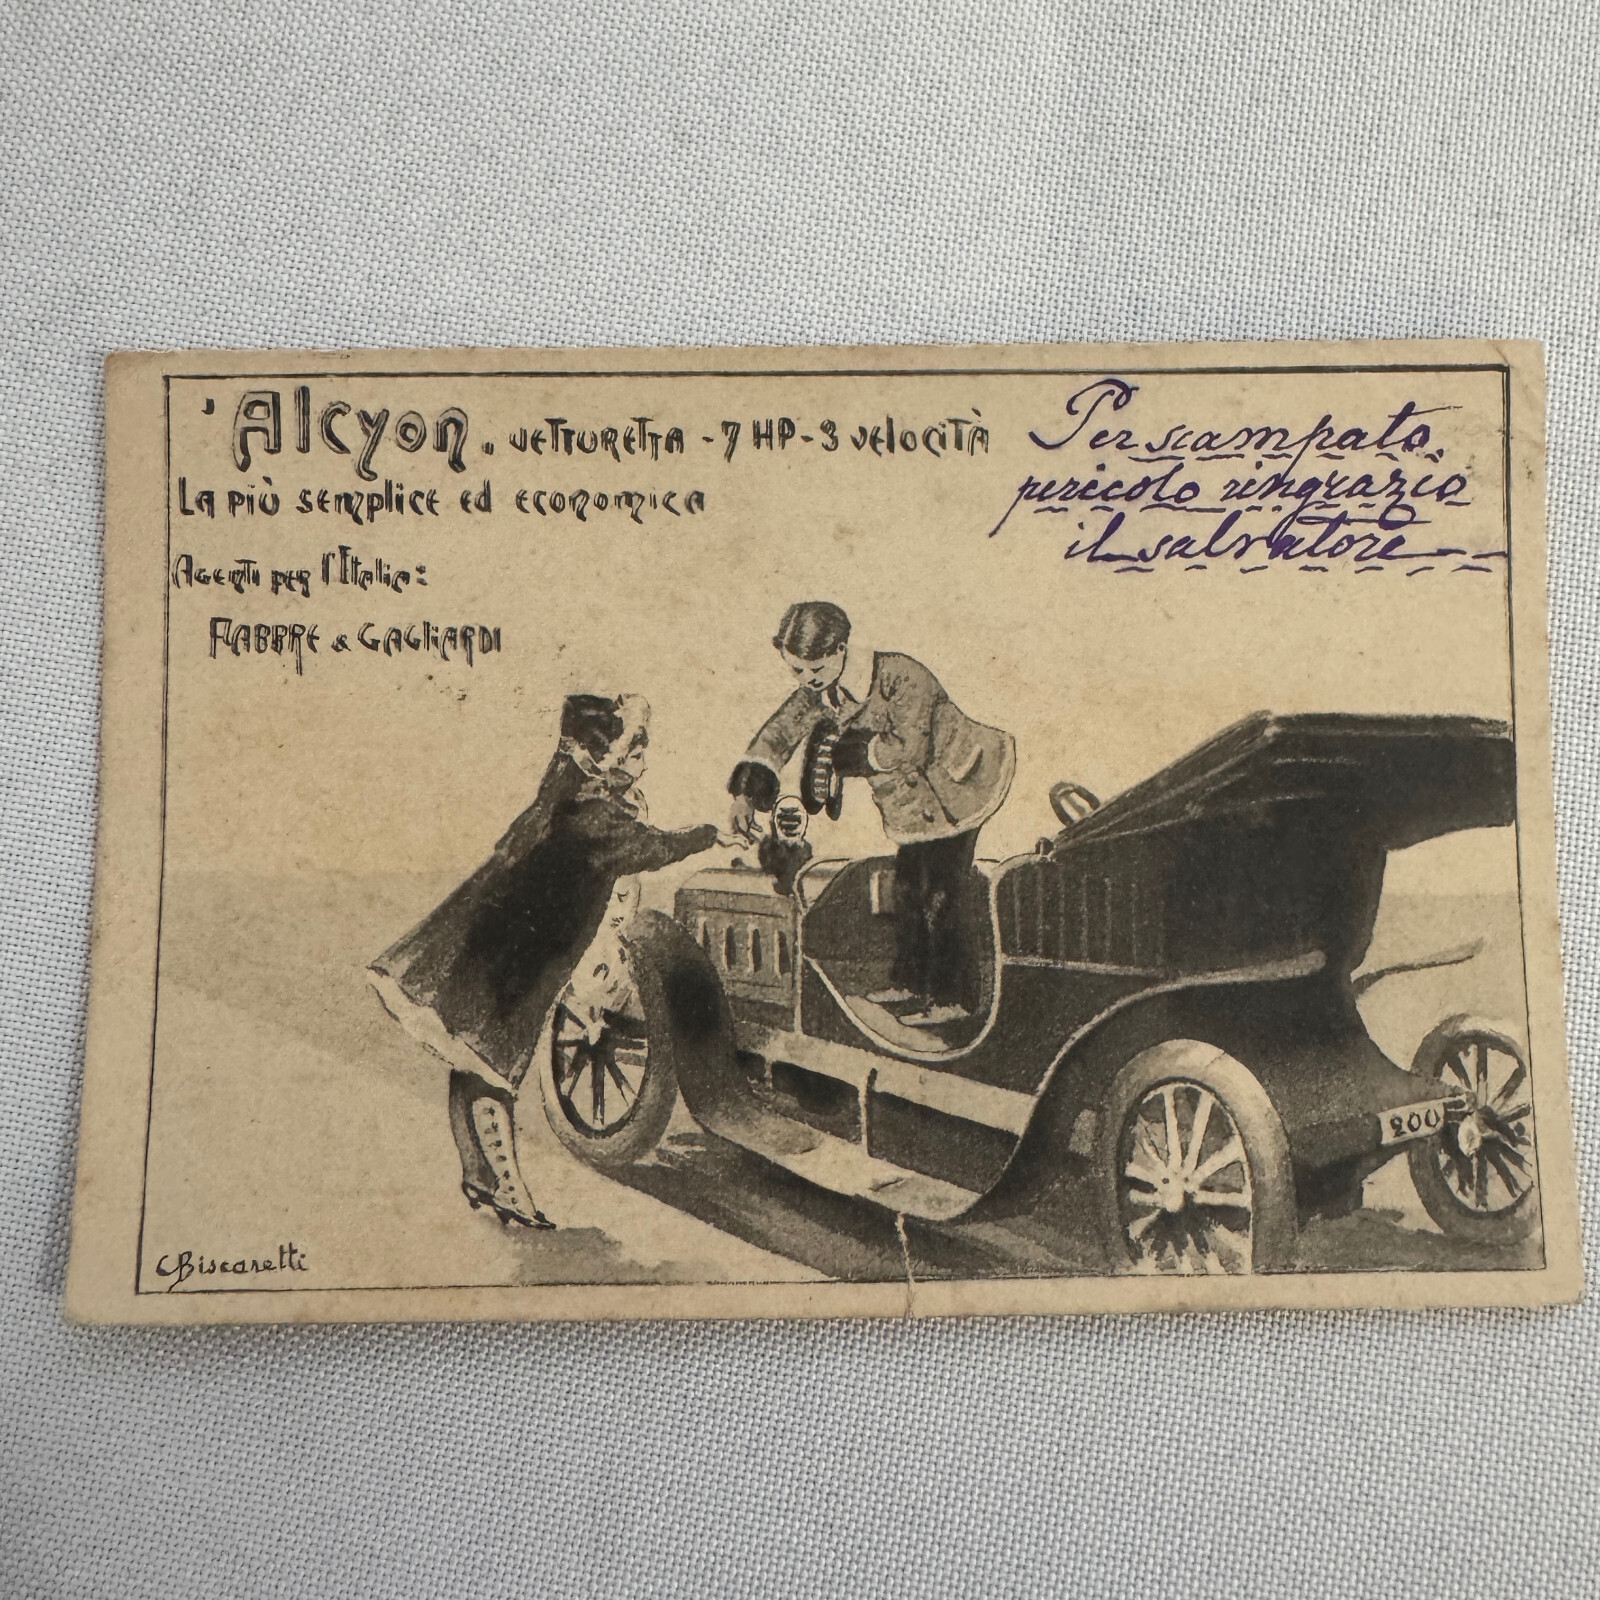 'Alcyon. vetturetta - 7 HP - 3 velocità
La più semplice ed economica
Agenti per l'Italia:
Fabbre & Gagliardi
Per scampato
pericolo ringrazio
il salvatore
200
CBiscaretti